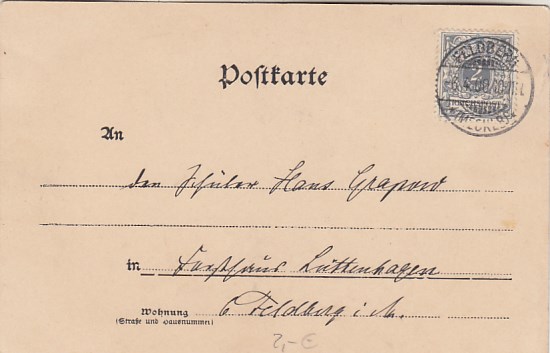 Postkarte
FELDBERG
2
(MECKLB)
An
den Schüler Hans Grapow
in Forsthaus Lüttenhagen
Wohnung
(Straße und Hausnummer)
b Feldberg i. M.
2,- €